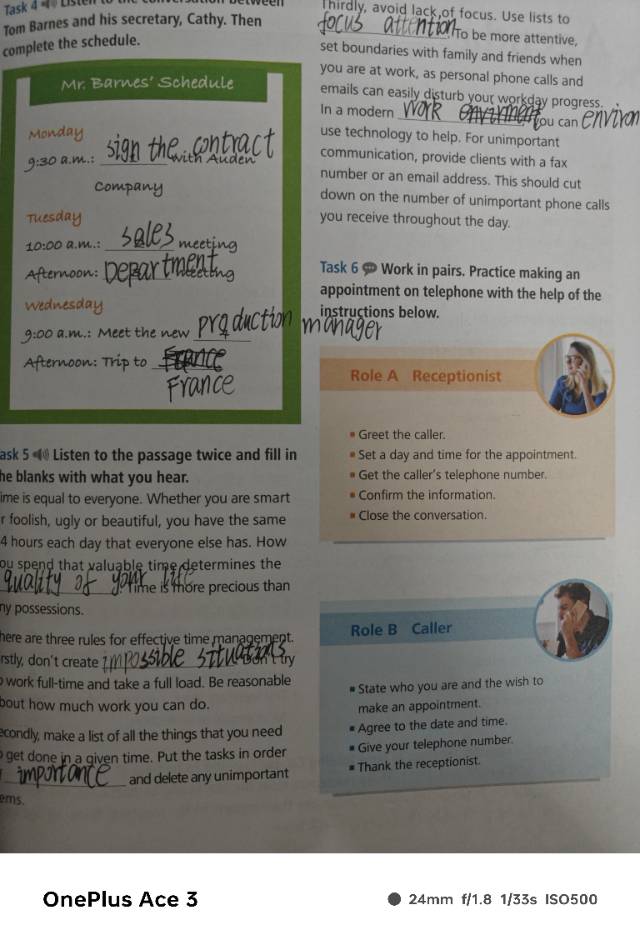 Task 4
Tom Barnes and his secretary, Cathy. Then
complete the schedule.
Mr. Barnes' Schedule
Monday
9:30 a.m.: sign the contract with Auden
Company
Tuesday
10:00 a.m.: sales meeting
Afternoon: Department meeting
Wednesday
9:00 a.m.: Meet the new production manager
Afternoon: Trip to
France
ask 5 Listen to the passage twice and fill in
he blanks with what you hear.
ime is equal to everyone. Whether you are smart
r foolish, ugly or beautiful, you have the same
4 hours each day that everyone else has. How
ou spend that valuable time determines the
quality of your life Time is more precious than
ny possessions.
here are three rules for effective time management.
rstly, don't create impossible situations Don't try
o work full-time and take a full load. Be reasonable
bout how much work you can do.
econdly, make a list of all the things that you need
o get done in a given time. Put the tasks in order
importance and delete any unimportant
ems.
Thirdly, avoid lack of focus. Use lists to
focus attention To be more attentive,
set boundaries with family and friends when
you are at work, as personal phone calls and
emails can easily disturb your workday progress.
In a modern work you can environ
use technology to help. For unimportant
communication, provide clients with a fax
number or an email address. This should cut
down on the number of unimportant phone calls
you receive throughout the day.
Task 6 Work in pairs. Practice making an
appointment on telephone with the help of the
instructions below.
Role A Receptionist
Greet the caller.
Set a day and time for the appointment.
Get the caller's telephone number.
Confirm the information.
Close the conversation.
Role B Caller
State who you are and the wish to
make an appointment.
Agree to the date and time.
Give your telephone number.
Thank the receptionist.
OnePlus Ace 3
24mm f/1.8 1/33s ISO500